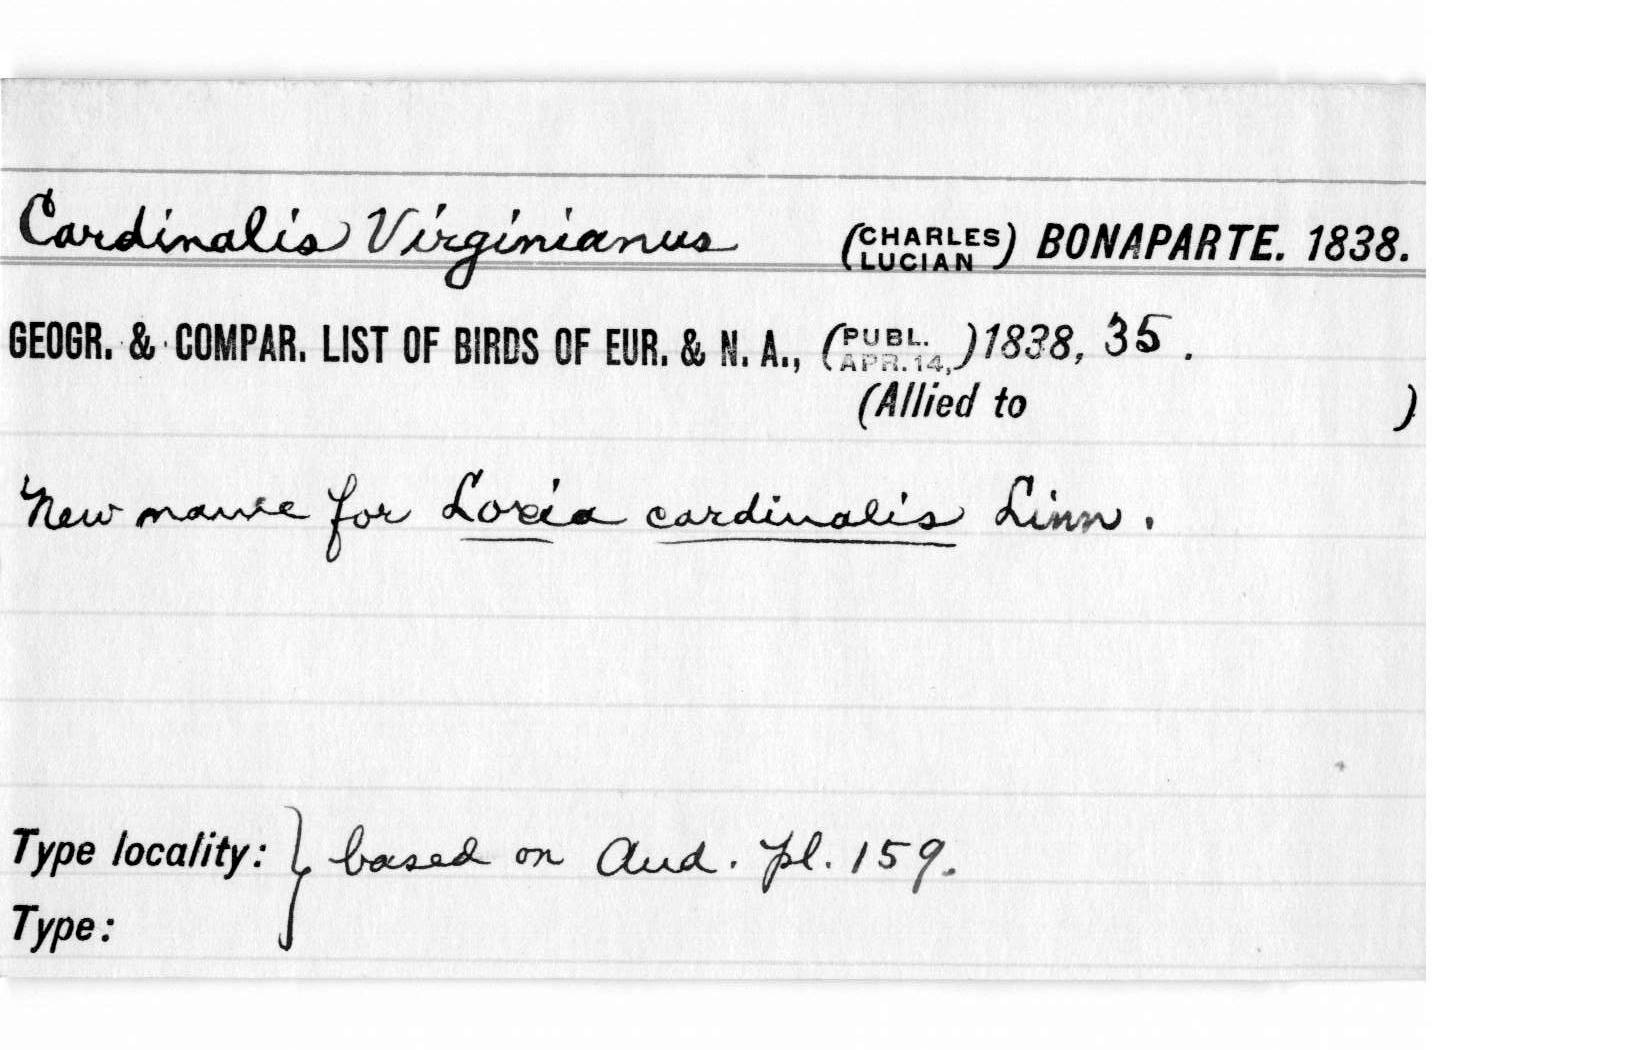 Cardinalis Virginianus (CHARLES LUCIAN) BONAPARTE. 1838.
GEOGR. & COMPAR. LIST OF BIRDS OF EUR. & N. A., (PUBL. APR. 14,) 1838, 35.
(Allied to )
New name for Loxia cardinalis Linn.
Type locality: } based on Aud. pl. 159.
Type: